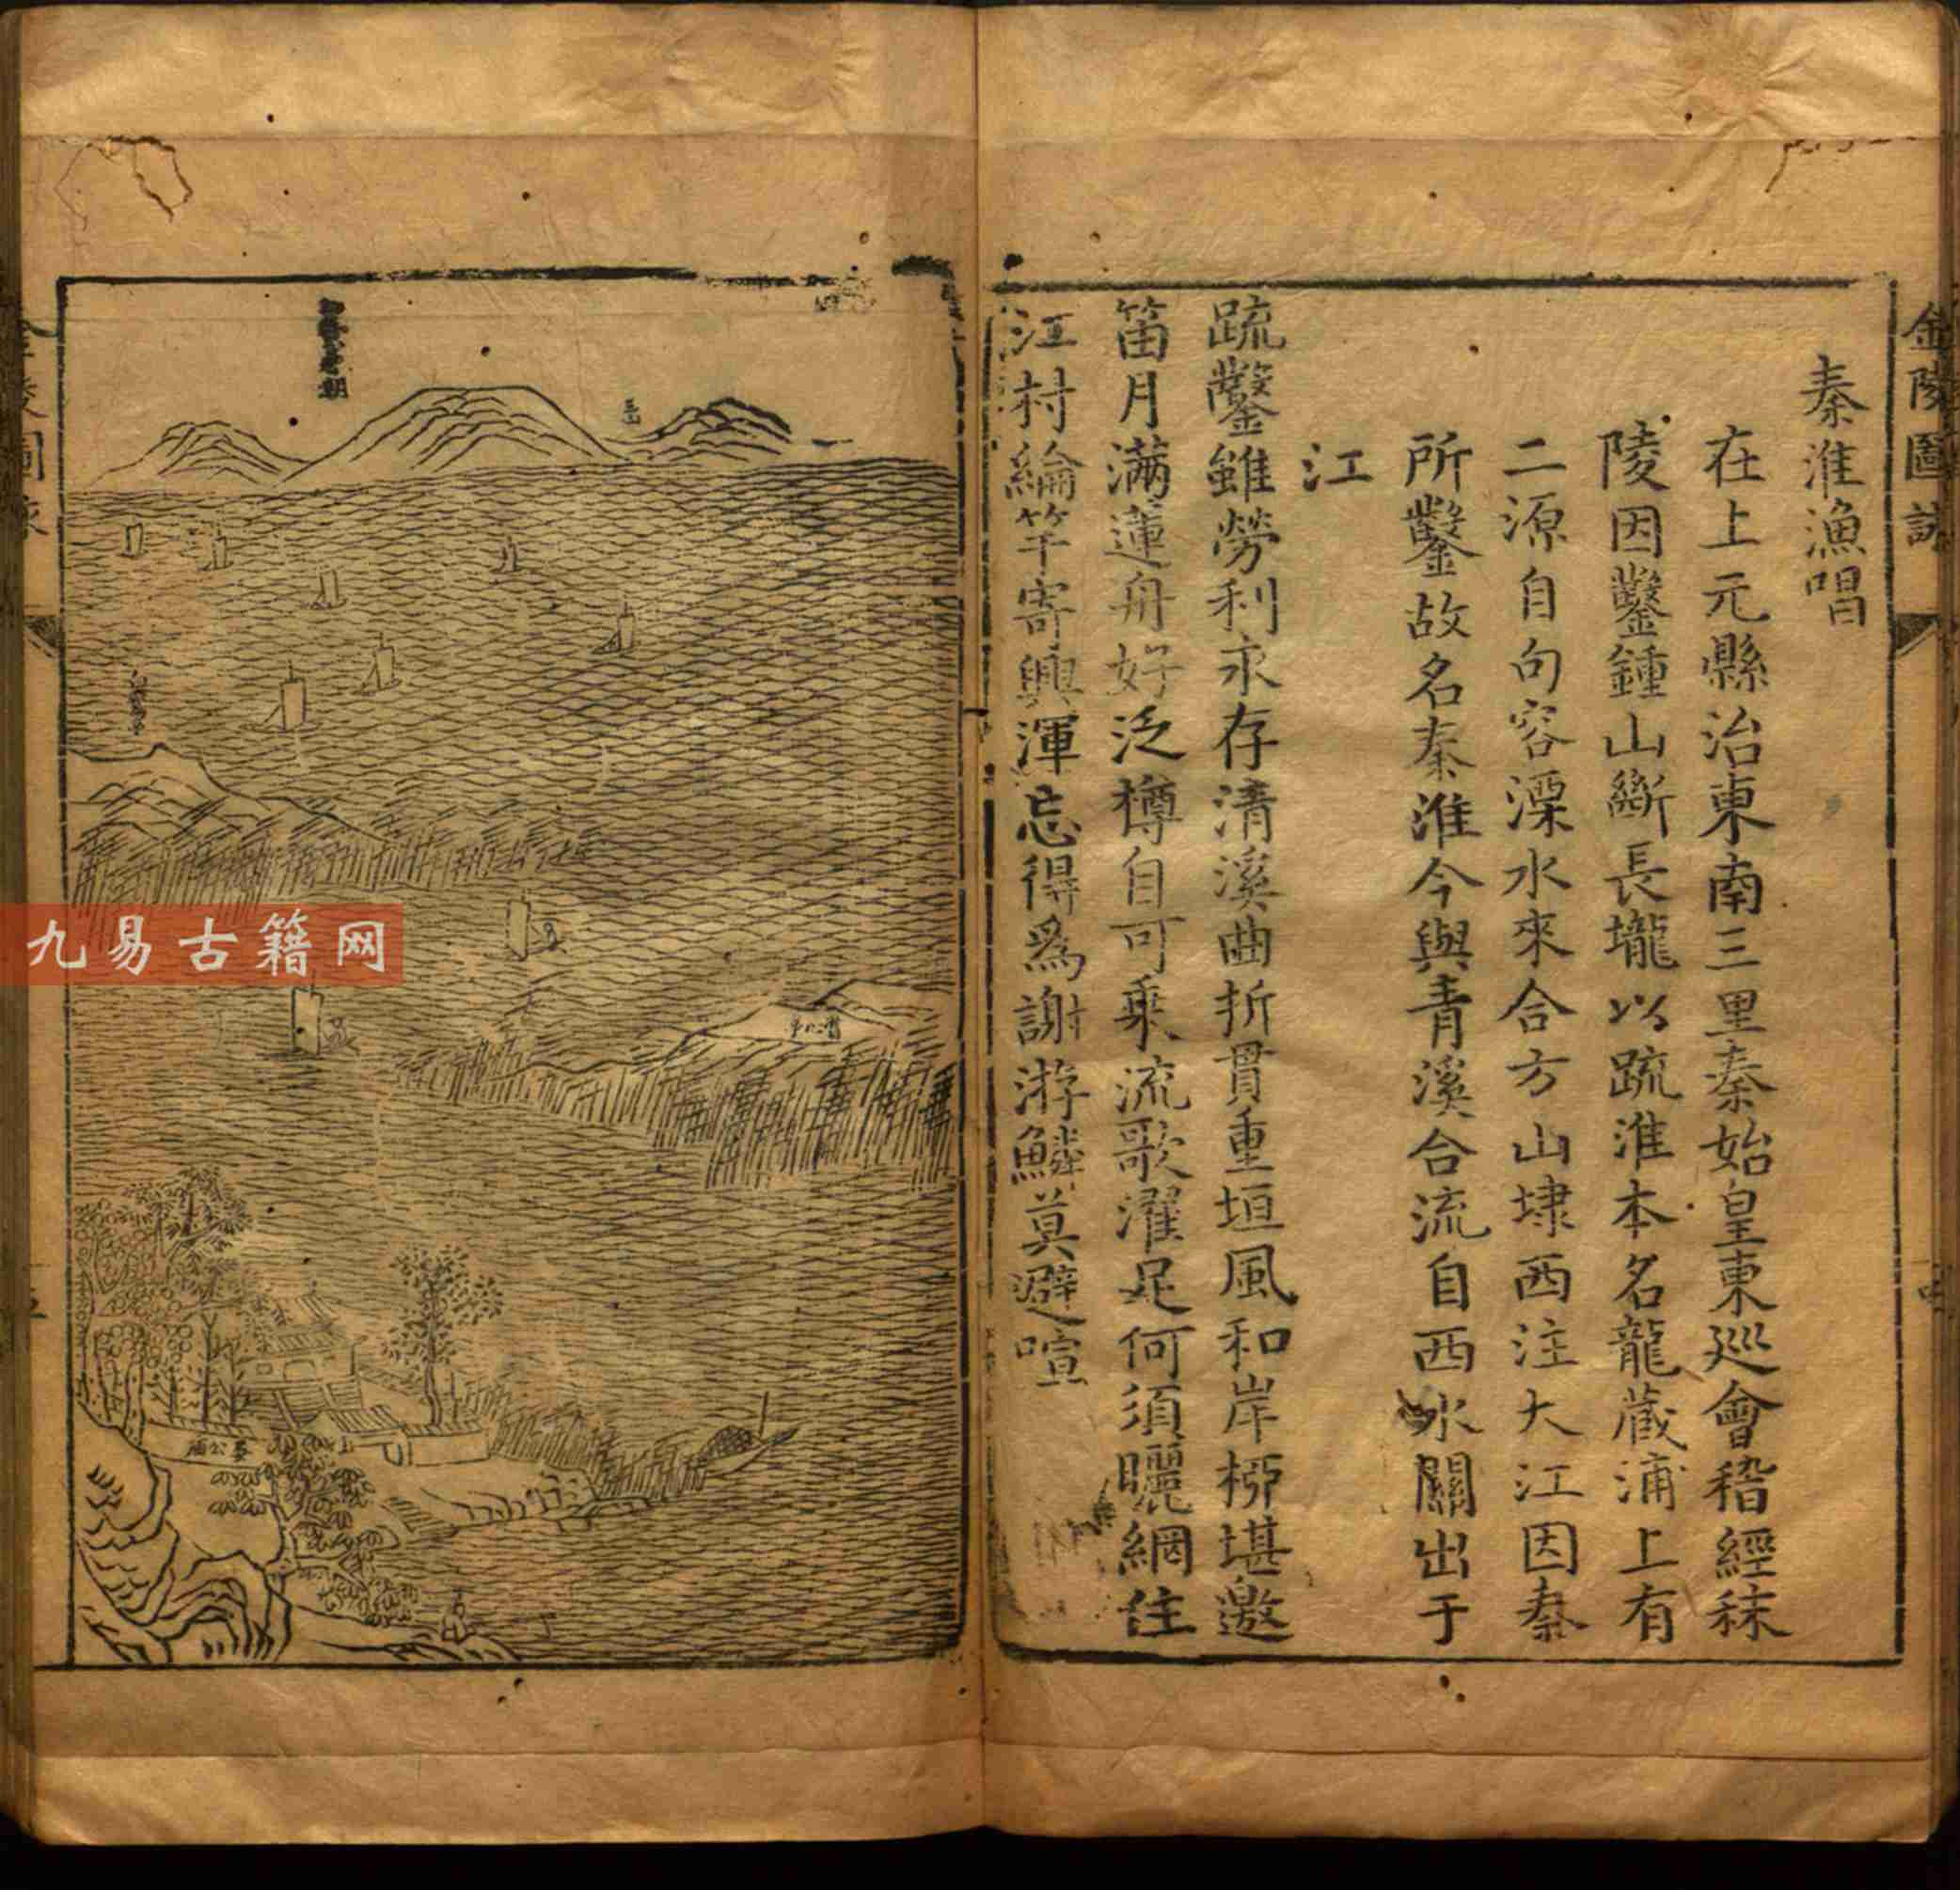 金陵圖詠
秦淮漁唱
在上元縣治東南三里秦始皇東巡會稽經秣
陵因鑿鍾山斷長壠以疏淮本名龍藏浦上有
二源自句容溧水來合方山埭西注大江因秦
所鑿故名秦淮今與青溪合流自西水關出于
江
疏鑿雖勞利永存清溪曲折貫重垣風和岸栁堪邀
笛月滿蓮舟好泛樽自可乘流歌濯足何須曬網住
江村綸竿寄興渾忘得爲謝游鱗莫避喧
九易古籍网